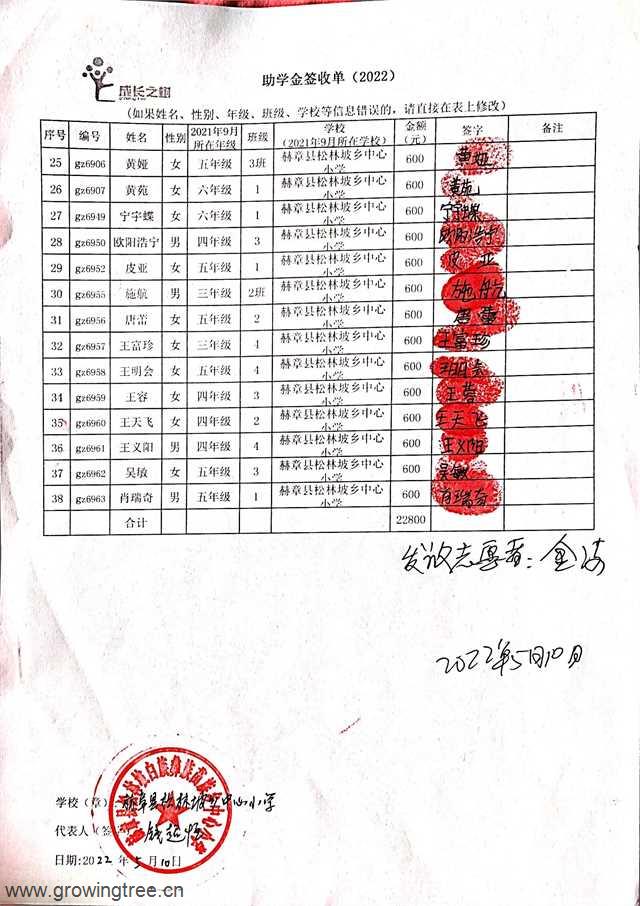 成长之树
助学金签收单（2022）
（如果姓名、性别、年级、班级、学校等信息错误的，请直接在表上修改）
序号 编号 姓名 性别 2021年9月所在年级 班级 学校（2021年9月所在学校） 金额（元） 签字 备注
25 gz6906 黄娅 女 五年级 3班 赫章县松林坡乡中心小学 600 黄娅
26 gz6907 黄苑 女 六年级 1 赫章县松林坡乡中心小学 600 黄苑
27 gz6949 宁宇蝶 女 六年级 1 赫章县松林坡乡中心小学 600 宁宇蝶
28 gz6950 欧阳浩宁 男 四年级 3 赫章县松林坡乡中心小学 600 欧阳浩宁
29 gz6952 皮亚 女 五年级 1 赫章县松林坡乡中心小学 600 皮亚
30 gz6955 施航 男 三年级 2班 赫章县松林坡乡中心小学 600 施航
31 gz6956 唐蕾 女 五年级 2 赫章县松林坡乡中心小学 600 唐蕾
32 gz6957 王富珍 女 三年级 4 赫章县松林坡乡中心小学 600 王富珍
33 gz6958 王明会 女 五年级 4 赫章县松林坡乡中心小学 600 王明会
34 gz6959 王容 女 四年级 3 赫章县松林坡乡中心小学 600 王容
35 gz6960 王天飞 女 四年级 2 赫章县松林坡乡中心小学 600 王天飞
36 gz6961 王义阳 男 四年级 4 赫章县松林坡乡中心小学 600 王义阳
37 gz6962 吴敏 女 五年级 3 赫章县松林坡乡中心小学 600 吴敏
38 gz6963 肖瑞奇 男 五年级 1 赫章县松林坡乡中心小学 600 肖瑞奇
合计 22800
发放志愿者：金涛
2022年5月10日
学校（章）：赫章县松林坡乡中心小学
代表人（签
日期：2022年5月10日
www.growingtree.cn